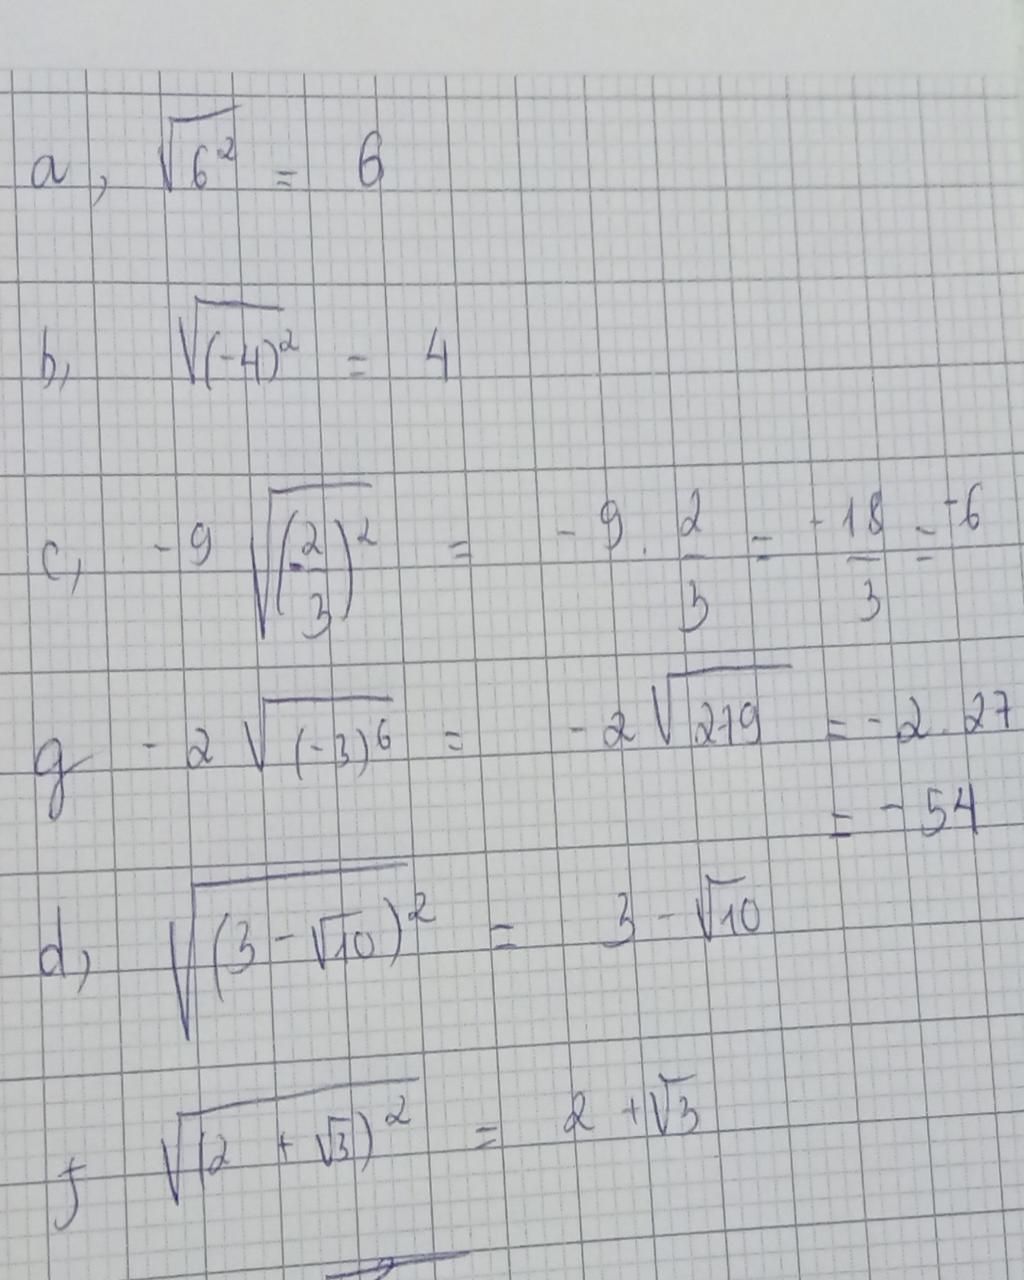 a, √6² = 6
b, √(-4)² = 4
c, -9 √(-2/3)² = -9 . 2/3 = -18/3 = -6
g -2 √(-3)⁶ = -2 √729 = -2 . 27
= -54
d, √(3 - √10)² = 3 - √10
f √(2 + √3)² = 2 + √3